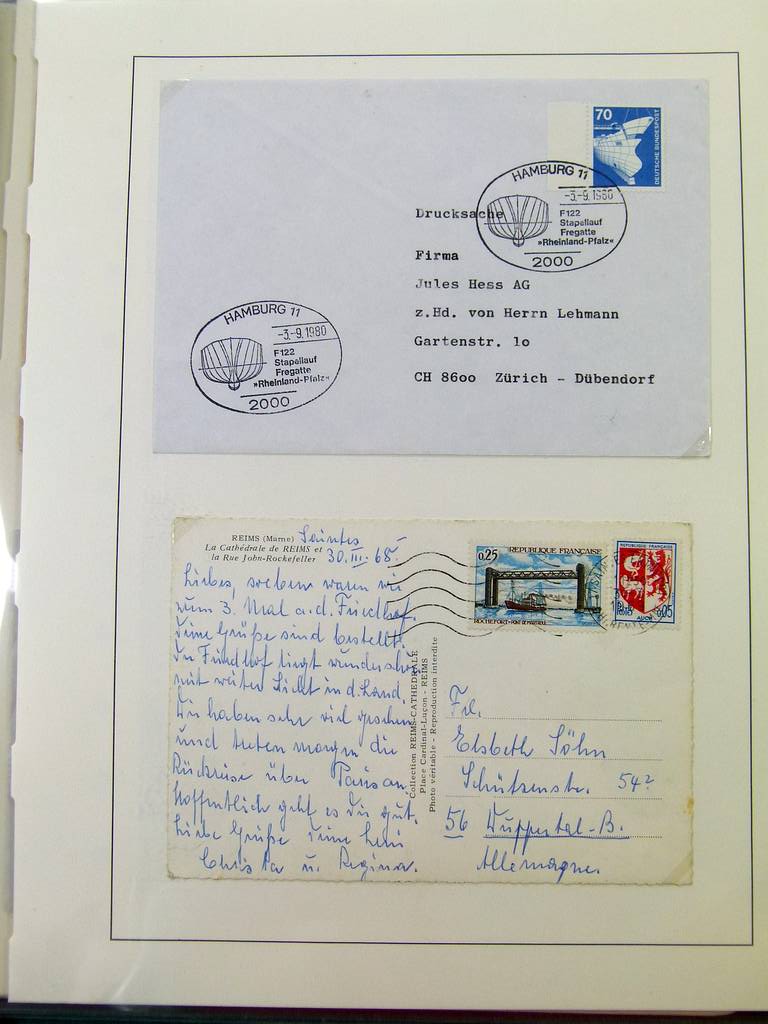 70
DEUTSCHE BUNDESPOST
HAMBURG 11
-3.-9.1980
F122
Stapellauf
Fregatte
»Rheinland-Pfalz«
2000
Drucksache
Firma
Jules Hess AG
z.Hd. von Herrn Lehmann
Gartenstr. 1o
CH 86oo Zürich - Dübendorf
HAMBURG 11
-3.-9.1980
F122
Stapellauf
Fregatte
»Rheinland-Pfalz«
2000
REIMS (Marne)
La Cathédrale de REIMS et
la Rue John-Rockefeller
Saintes
30.III.68.
Liebes, soeben waren wir
zum 3. Mal a.d. Friedhof.
Deine Grüße sind bestellt.
Der Friedhof liegt wunderschön
mit weiter Sicht in d. Land.
Wir haben sehr viel gesehen
und treten morgen die
Rückreise über Paris an.
Hoffentlich geht es Dir gut.
Liebe Grüße Deine
Christa u. Regina.
Collection REIMS-CATHEDRALE
Place Cardinal-Luçon - REIMS
Photo véritable - Reproduction interdite
0,25
REPUBLIQUE FRANÇAISE
ROCHEFORT-PONT DE MARTROU
REPUBLIQUE FRANÇAISE
POSTES
0,05
AUCH
Frl.
Elsbeth Söhn
Schützenstr. 54
56 Wuppertal-B.
Allemagne.